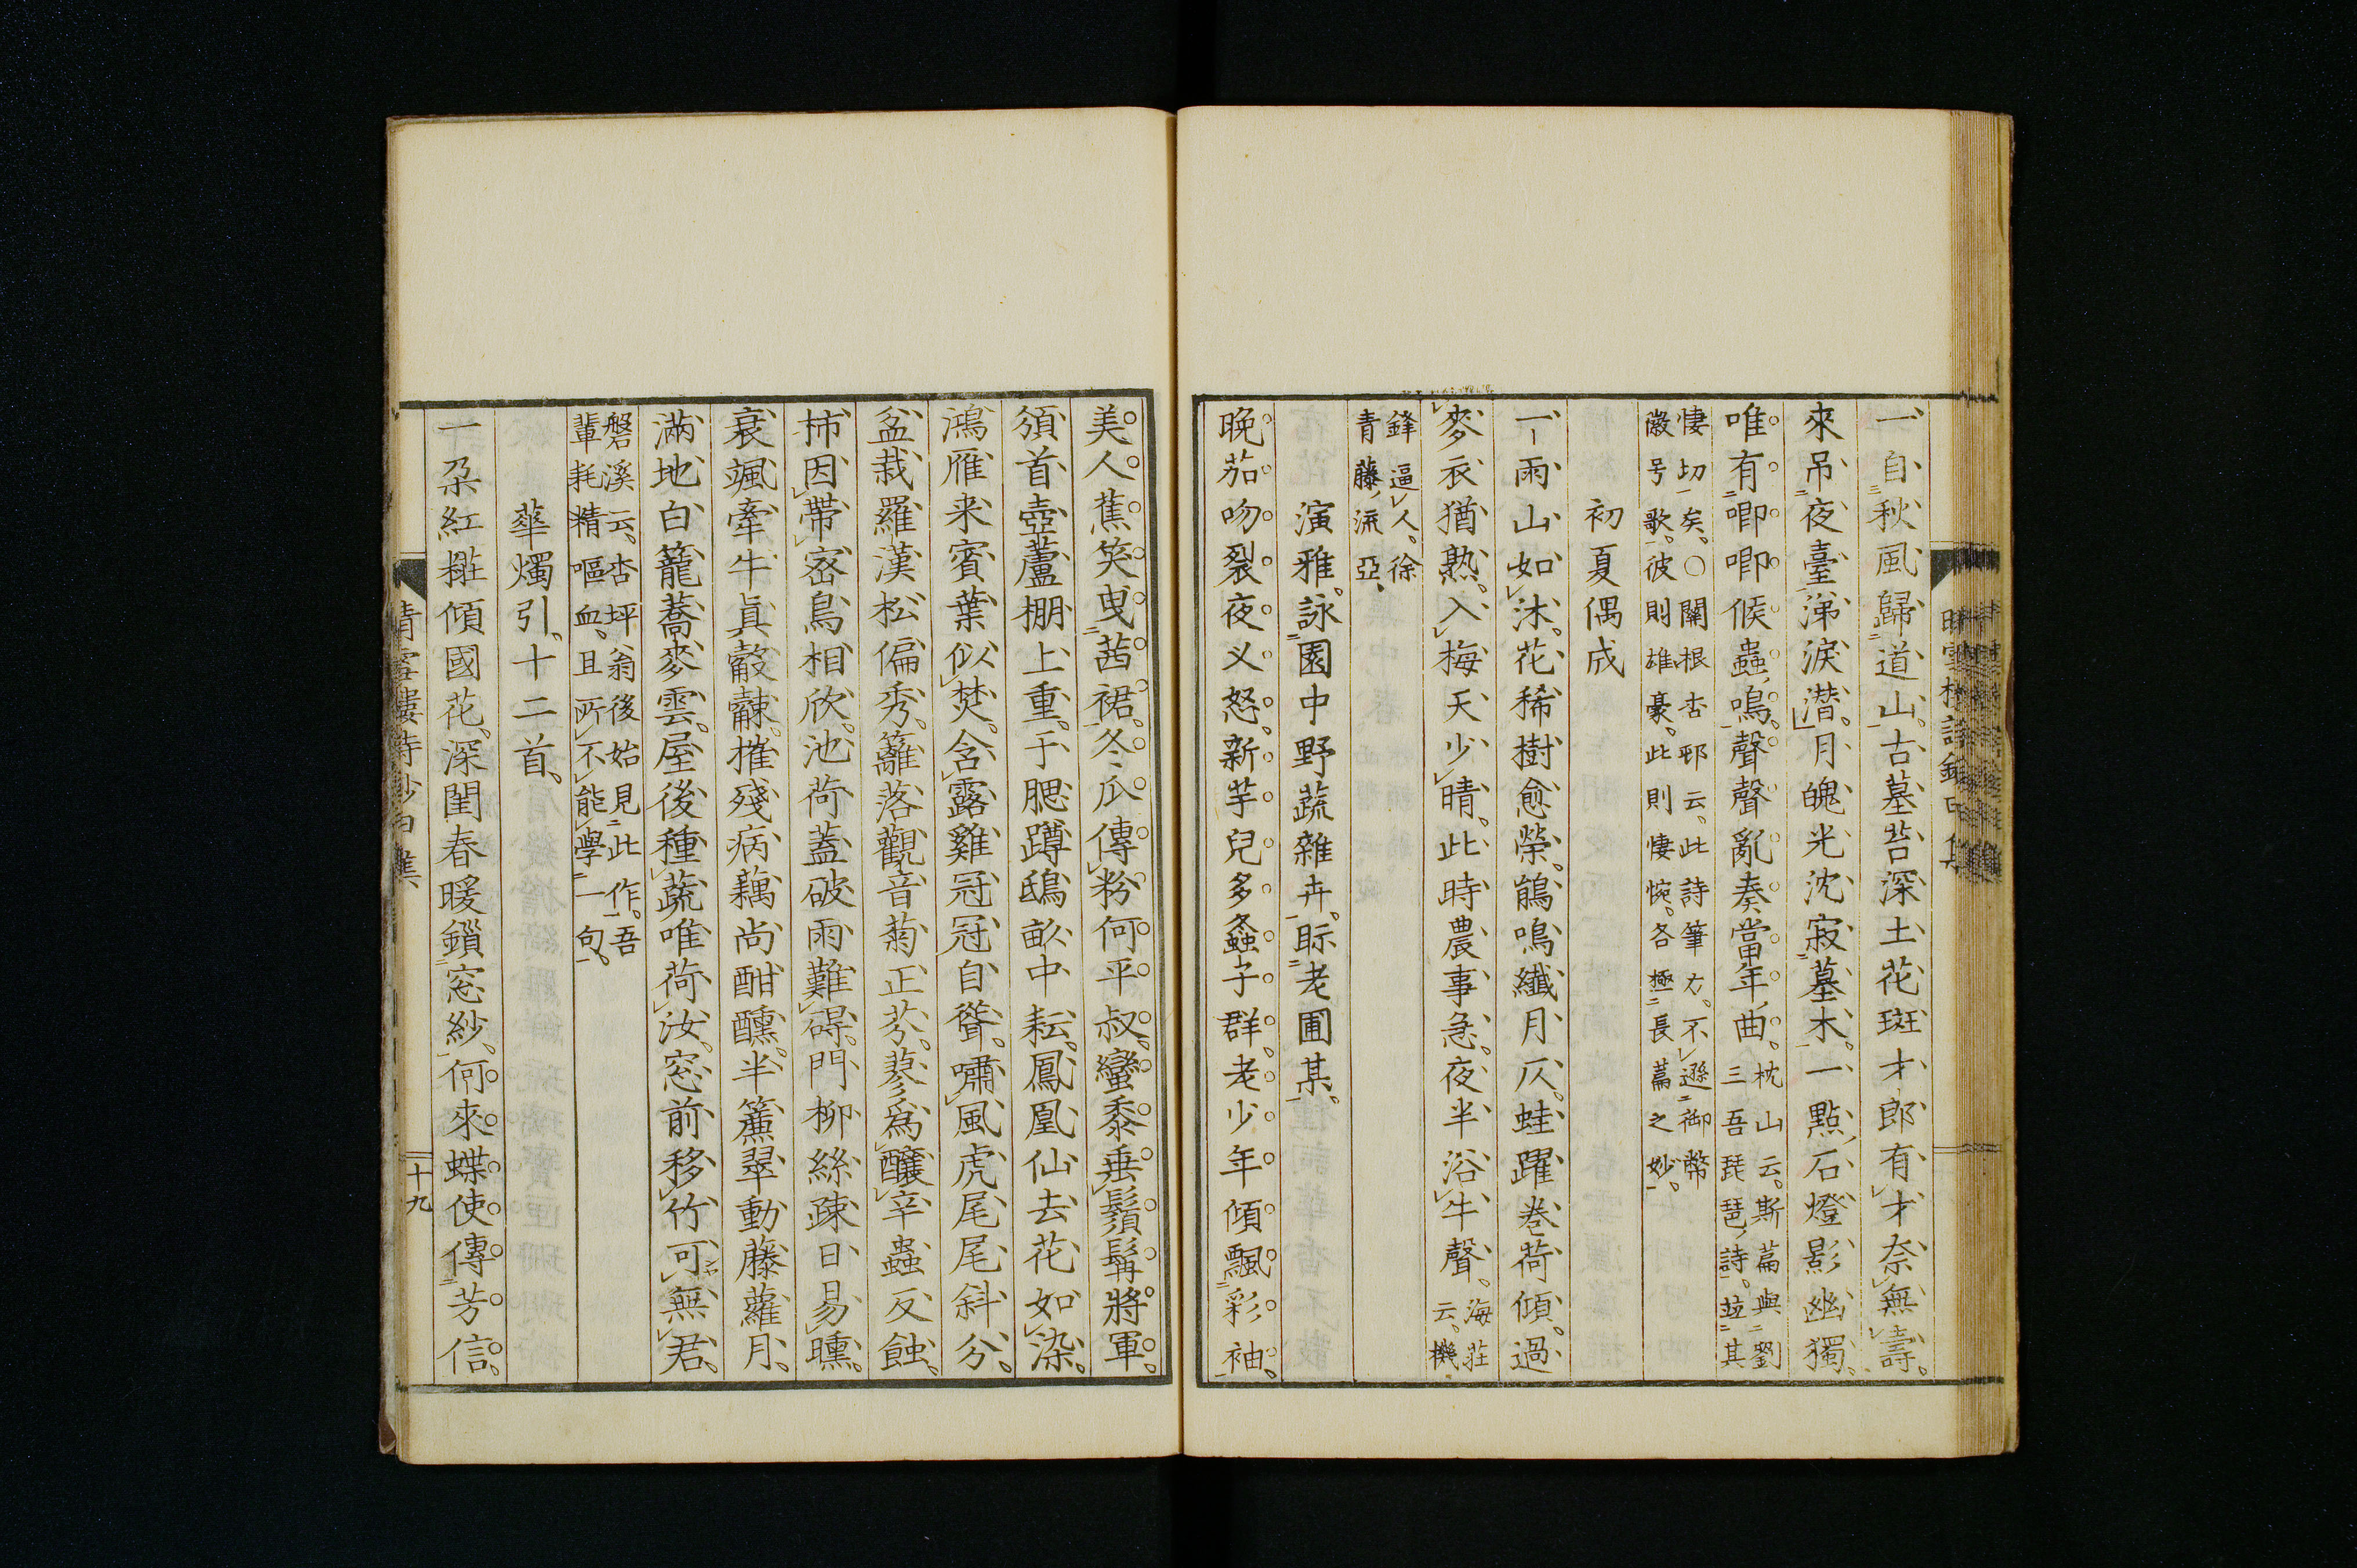 一自秋風歸道山。古墓苔深土花斑才郎有才奈無壽。
來吊夜臺涕淚潜。月魄光沈寂墓木。一點石燈影幽獨。
唯有喞喞候蟲鳴。聲聲亂奏當年曲。枕山云。斯篇與劉
三吾琵琶詩。竝其
悽切矣。○闌根杏邨云。此詩筆力。不遜御幣
徽号歌。彼則雄豪。此則悽惋。各極長篇之妙。
初夏偶成
一雨山如沐。花稀樹愈榮。鵑鳴纖月仄。蛙躍卷荷傾。過
麥衣猶熟。入梅天少晴。此時農事急。夜半浴牛聲。海莊
云。機
鋒逼人。徐
青藤流亞、
演雅。詠園中野蔬雜卉。眎老圃某。
晩茄吻裂夜叉怒。新芋兒多螽子群。老少年傾飄彩袖。
美人蕉笑曳茜裙。冬瓜傳粉何平叔。蠻黍垂鬚髯將軍。
頒首壺蘆棚上重。于腮蹲鴟畝中耘。鳳凰仙去花如染。
鴻雁来賓葉似焚。含露雞冠冠自聳。嘯風虎尾尾斜分。
盆栽羅漢松偏秀。籬落觀音菊正芬。蓼爲釀辛蟲反蝕。
柿因帶密鳥相欣。池荷蓋破雨難碍。門柳絲疎日易曛。
衰颯牽牛眞觳觫。摧殘病藕尚酣醺。半簷翠動藤蘿月。
滿地白籠蕎麥雲。屋後種蔬唯荷汝。窓前移竹可無君。
磐溪云。杏坪翁後始見此作。吾
輩耗精嘔血。且所不能學一句。
華燭引。十二首、
一朶紅攡傾國花。深閨春暖鎖窓紗。何來蝶使傳芳信。
十九